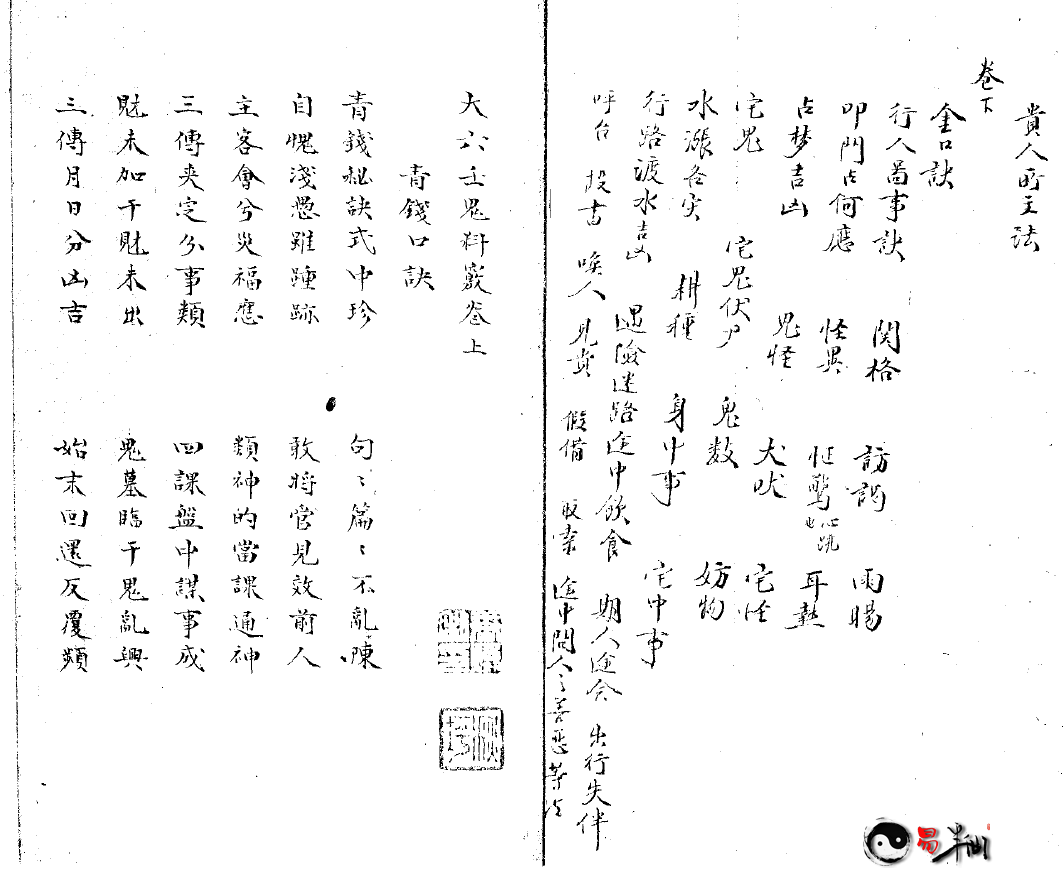 貴人所主法
卷下
金口訣
行人啚事訣 関格 訪謁 雨暘
叩門占何應 怪異 怔驚 心跳 耳熱
占梦吉凶 鬼怪 犬吠 宅怪
宅鬼 宅鬼伏尸 鬼数 妨物
水漲 耕種 身中事 宅中事
行路渡水吉凶 遇險迷路途中飲食 期人途会 出行失伴
呼召 投書 喚人 見貴 假借 取索 途中問人之善惡等
大六壬鬼料竅卷上
青錢口訣
青錢秘訣式中珍 句〻篇〻不亂陳
自愧淺愚雖踵跡 敢將管見效前人
主客會兮災福應 類神的當課通神
三傳夾定分事類 四課盤中謀事成
財未加干財未出 鬼墓臨干鬼亂興
三傳月日分凶吉 始末回還反覆頻
易半仙